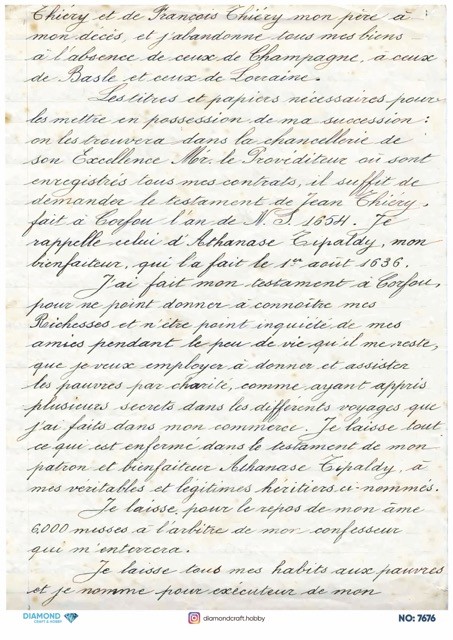 Thiéry et de François Thiéry mon père à
mon décès, et j'abandonne tous mes biens
à l'absence de ceux de Champagne, à ceux
de Basle et ceux de Lorraine.
Les titres et papiers nécessaires pour
les mettre en possession de ma succession :
on les trouvera dans la chancellerie de
son Excellence Mr. le Provéditeur où sont
enregistrés tous mes contrats, il suffit de
demander le testament de Jean Thiéry,
fait à Corfou l'an de N. S. 1654. Je
rappelle celui d'Athanase Tipaldy, mon
bienfaiteur, qui l'a fait le 1er août 1636.
J'ai fait mon testament à Corfou,
pour ne point donner à connoître mes
Richesses et n'être point inquiété de mes
amies pendant le peu de vie qu'il me reste,
que je veux employer à donner et assister
les pauvres par charité, comme ayant appris
plusieurs secrets dans les différents voyages que
j'ai faits dans mon commerce. Je laisse tout
ce qui est enfermé dans le testament de mon
patron et bienfaiteur Athanase Tipaldy, à
mes véritables et légitimes héritiers ci-nommés.
Je laisse, pour le repos de mon âme
6,000 messes à l'arbitre de mon confesseur
qui m'enterrera.
Je laisse tous mes habits aux pauvres
et je nomme pour exécuteur de mon
DIAMOND
CRAFT & HOBBY
diamondcraft.hobby
NO: 7676